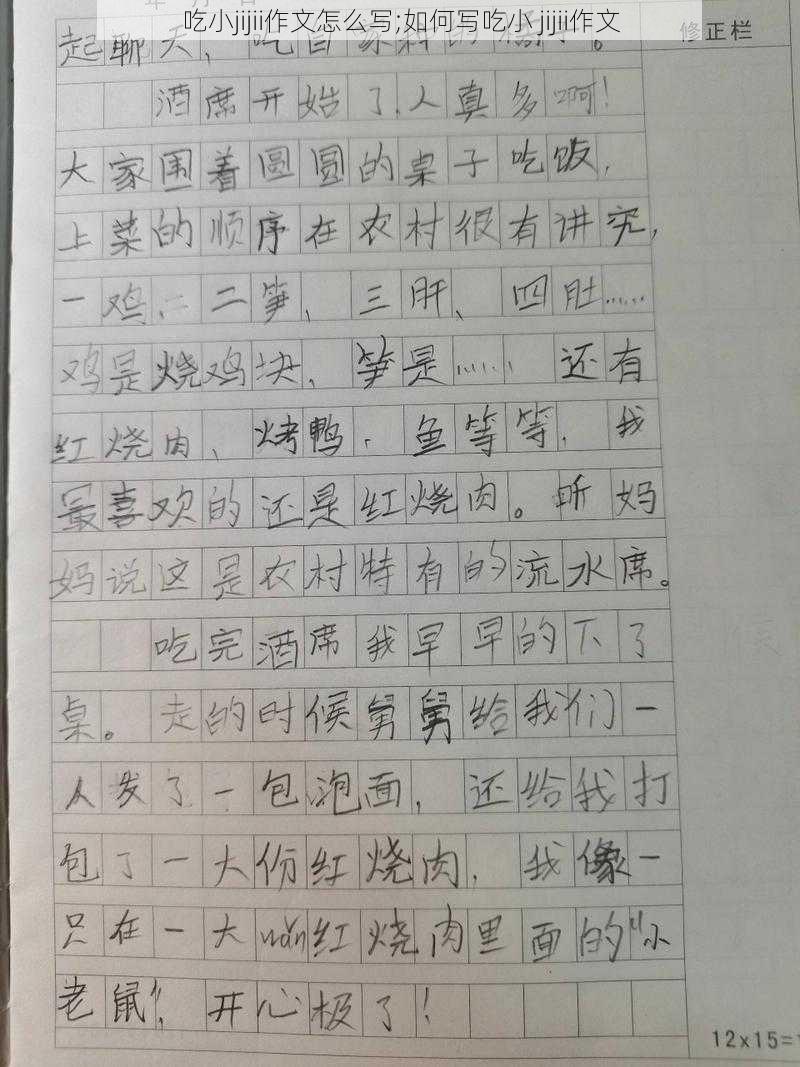 年 月 日
吃小jijii作文怎么写;如何写吃小jijii作文
修正栏
起聊天，吃自家种的橘子。
酒席开始了，人真多啊！
大家围着圆圆的桌子吃饭，
上菜的顺序在农村很有讲究，
一鸡、二笋、三肝、四肚……
鸡是烧鸡块，笋是……，还有
红烧肉、烤鸭、鱼等等，我
最喜欢的还是红烧肉。听妈
妈说这是农村特有的流水席。
吃完酒席我早早的下了
桌。走的时候舅舅给我们一
人发了一包泡面，还给我打
包了一大份红烧肉，我像一
只在一大wǎn红烧肉里面的“小
老鼠”，开心极了！
12x15=